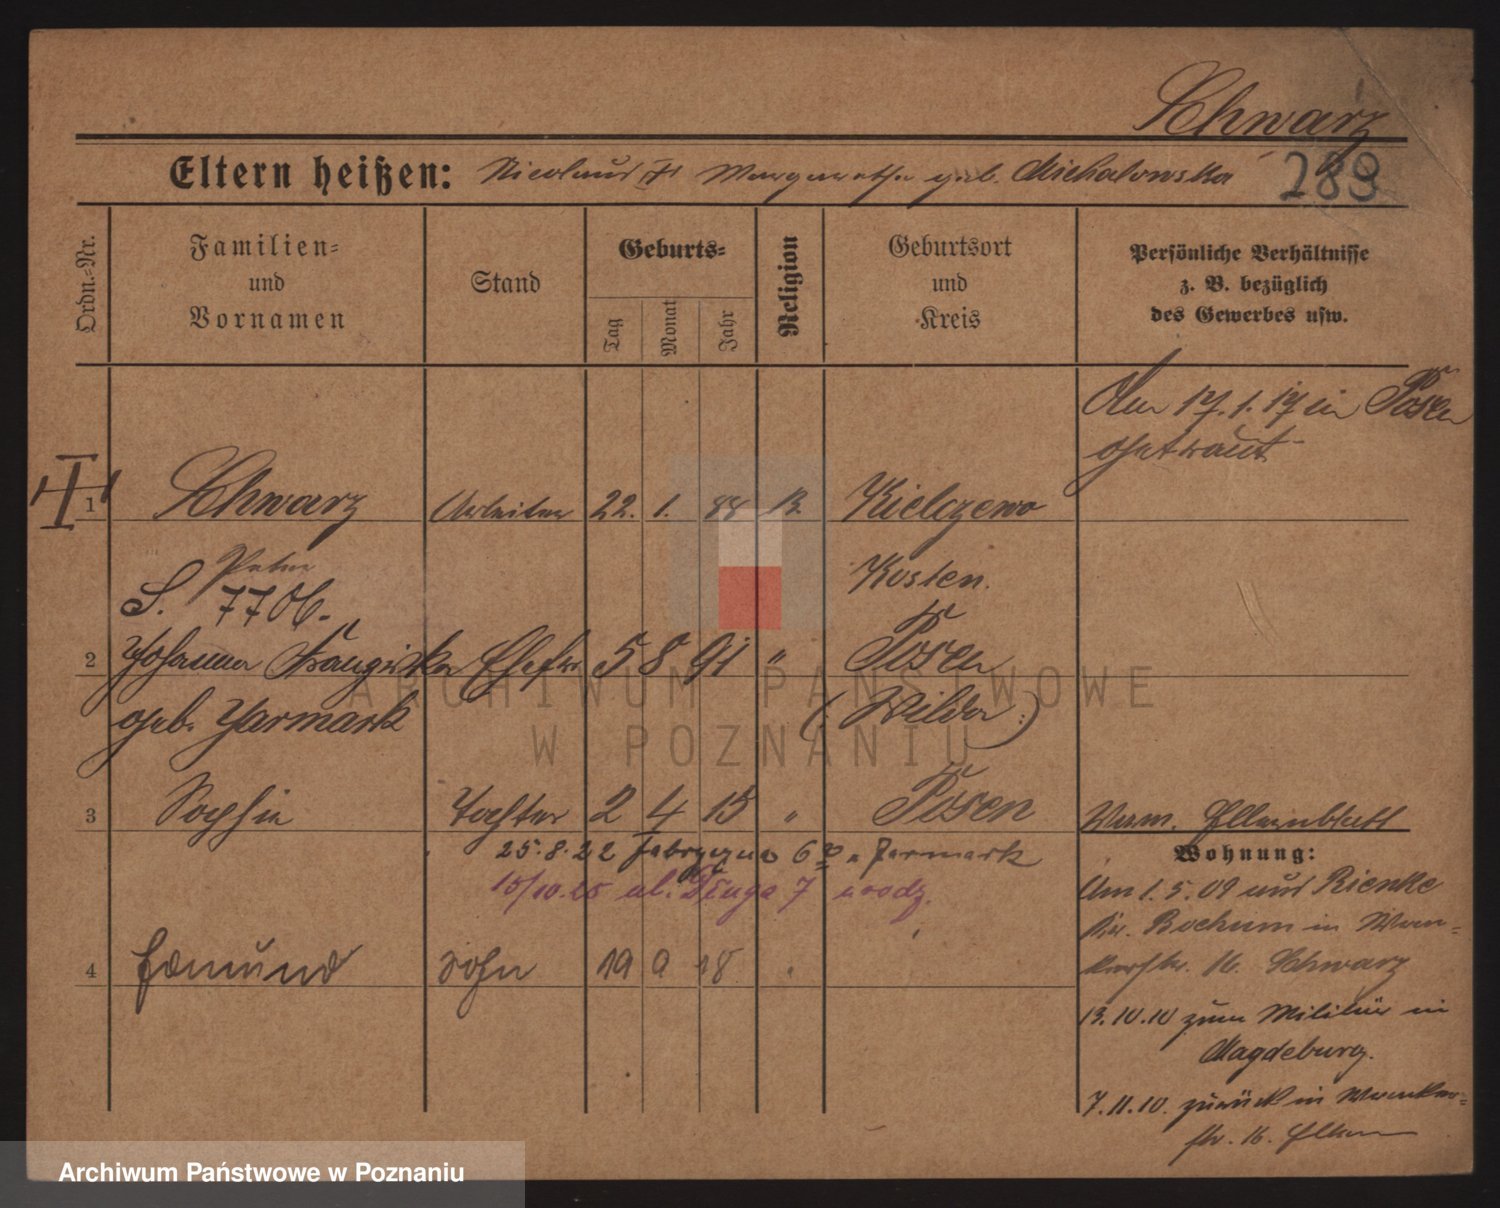 Schwarz
Eltern heißen: Nicolaus u. Margarethe geb. Michalowska
289
Ordn.=Nr.
Familien=
und
Vornamen
Stand
Geburts=
Tag
Monat
Jahr
Religion
Geburtsort
und
Kreis
Persönliche Verhältnisse
z. B. bezüglich
des Gewerbes usw.
Am 17.1.17 in Posen
getraut
1 Schwarz Arbeiter 22. 1. 88 Kielczewo
Peter Kosten.
S. 7706.
2 Johanna Franziska Ehefr. 5 8 91 " Posen
geb. Jarmark (Wilda)
3 Sophie Tochter 2 4 15 " Posen
25.8.22 6 Jarmark
15/10.25 ul. Długa 7
4 Edmund Sohn 19 9 18 "
Elternblatt
Wohnung:
Am 1.5.09 aus Rienke
Kr. Bochum in
16. Schwarz
13.10.10 zum Militär in
Magdeburg.
7.11.10. zurück in
str. 16. Eltern
ARCHIWUM PAŃSTWOWE
W POZNANIU
Archiwum Państwowe w Poznaniu